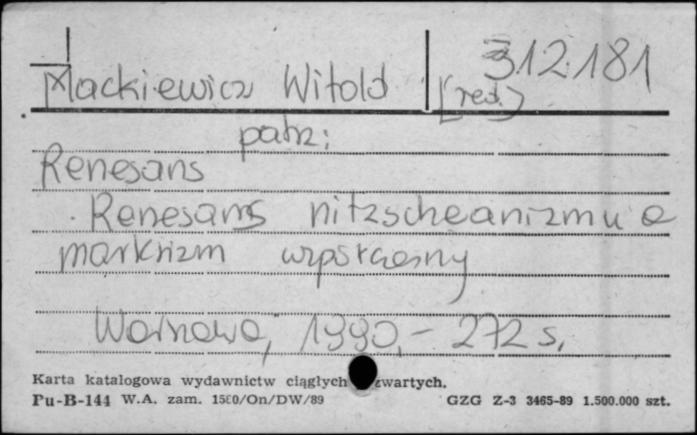 312181
Mackiewicz Witold [red.]
patrz:
Renesans
Renesans nitzscheanizmu a
marksizm współczesny
Warszawa, 1990, - 272 s.
Karta katalogowa wydawnictw ciągłych zwartych.
Pu-B-144 W.A. zam. 1580/On/DW/89 GZG Z-3 3465-89 1.500.000 szt.